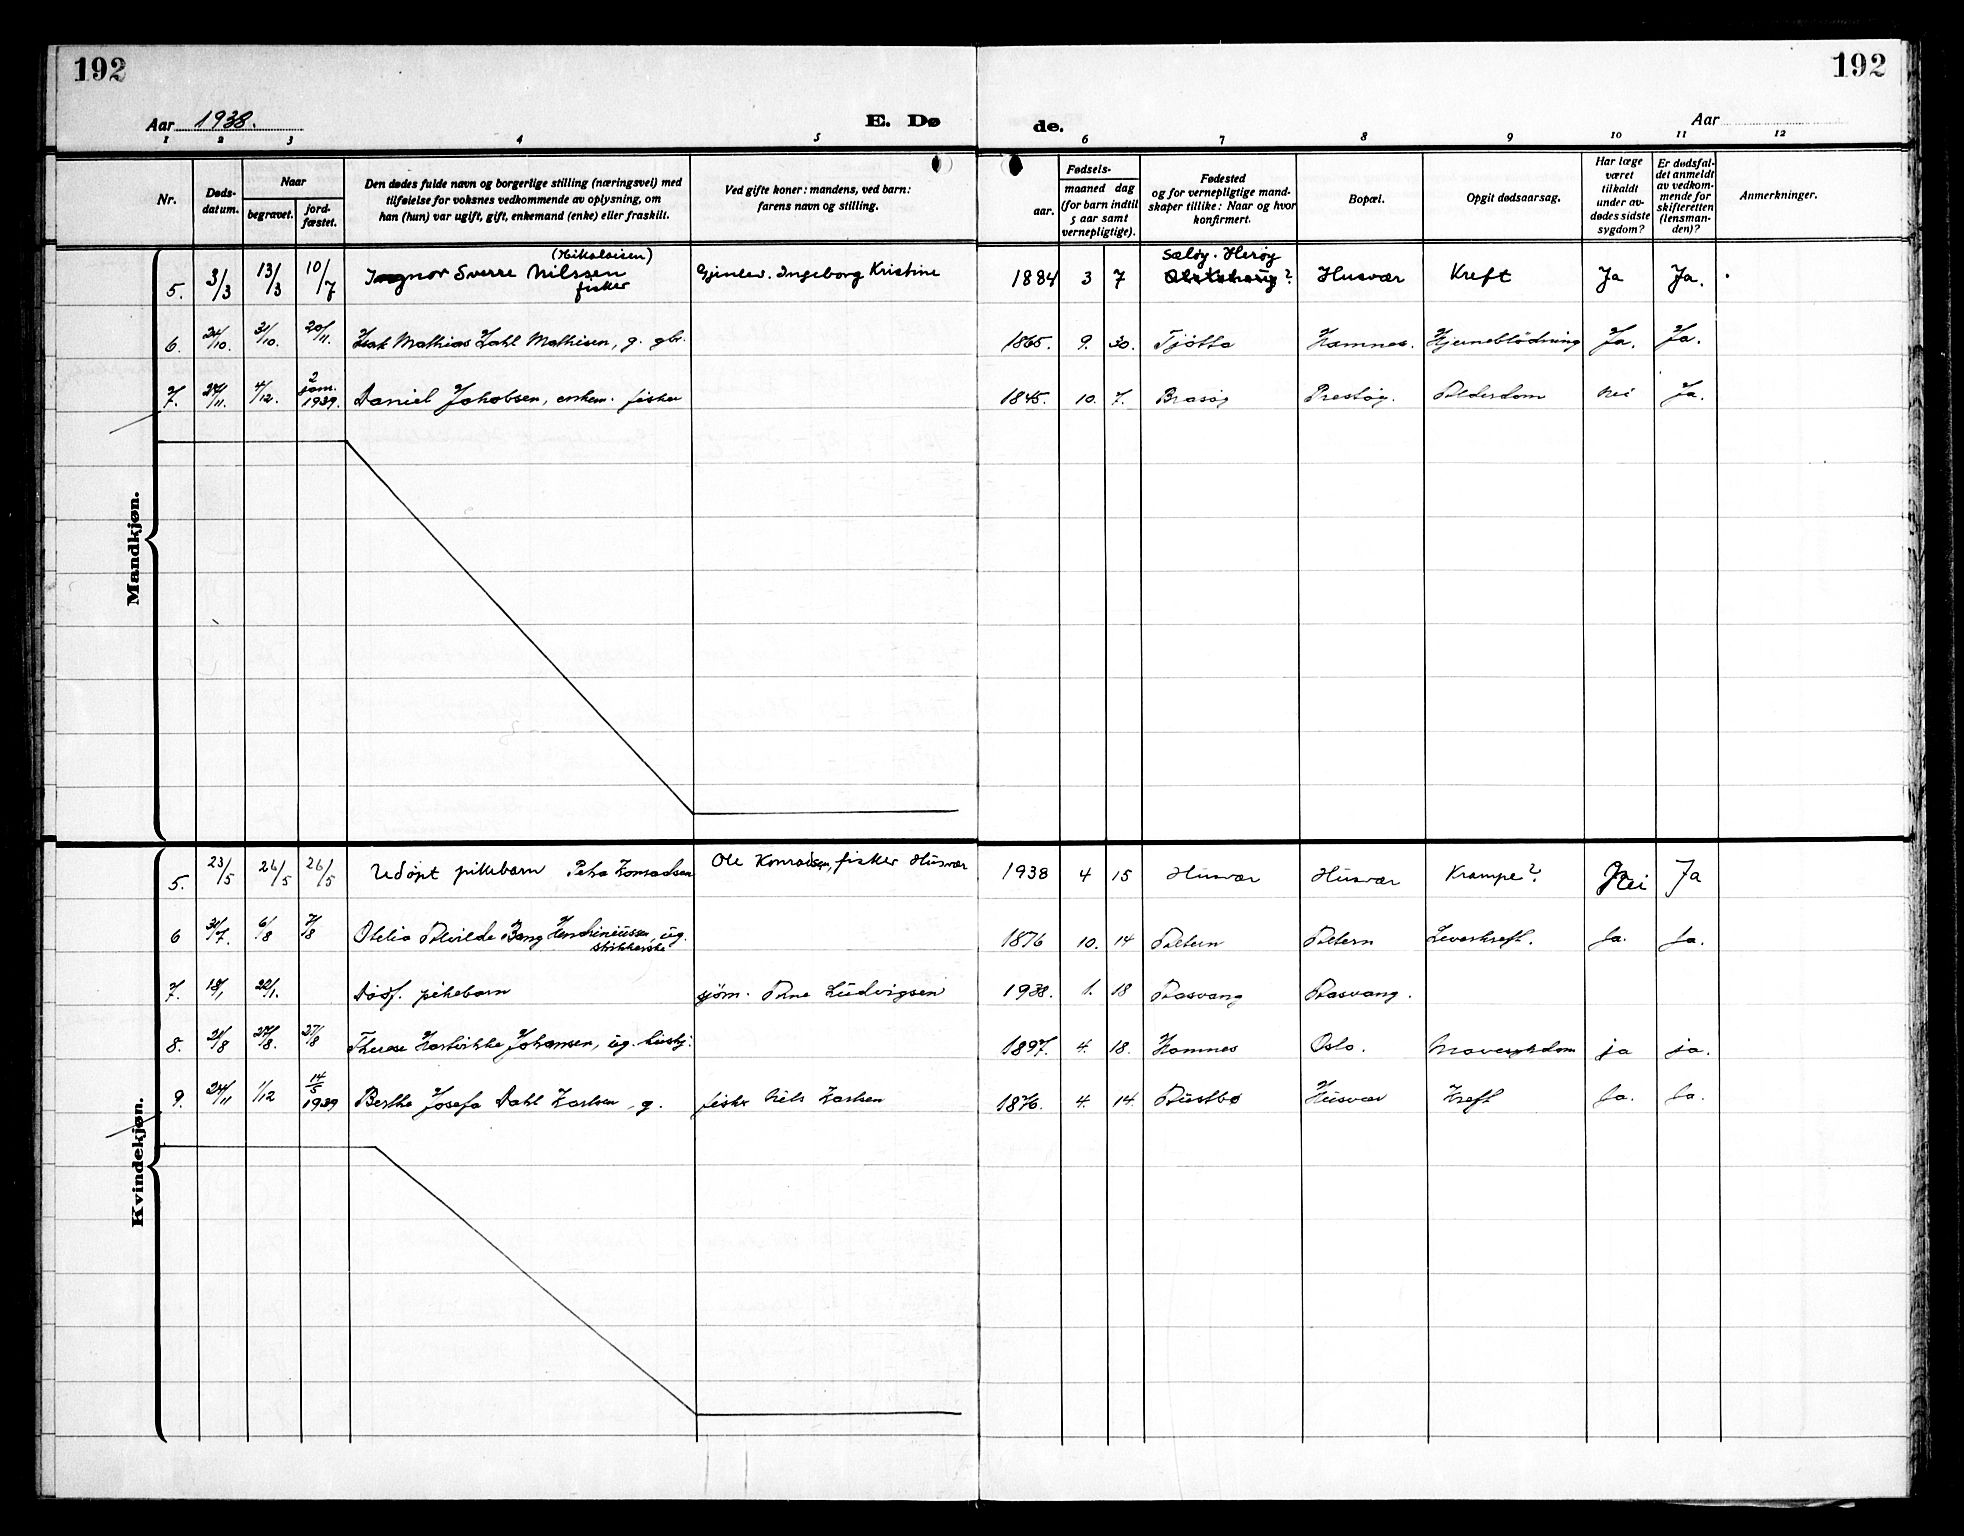 192
192
Aar 1938.
E. Dø
de.
Aar
1 2 3 4 5 6 7 8 9 10 11 12
Nr.
Døds-
datum.
Naar
begravet.
jord-
fæstet.
Den dødes fulde navn og borgerlige stilling (næringsvei) med
tilføielse for voksnes vedkommende av oplysning, om
han (hun) var ugift, gift, enkemand (enke) eller fraskilt.
Ved gifte koner: mandens, ved barn:
farens navn og stilling.
Fødsels-
aar.
maaned dag
(for barn indtil
5 aar samt
vernepligtige).
Fødested
og for vernepligtige mand-
skaper tillike: Naar og hvor
konfirmert.
Bopæl.
Opgit dødsaarsag.
Har læge
været
tilkaldt
under av-
dødes sidste
sygdom?
Er dødsfal-
det anmeldt
av vedkom-
mende for
skifteretten
(lensman-
den)?
Anmerkninger.
Mandkjøn.
(Nikolaisen) Sæløy. Herøy
5. 3/3 13/3 10/7 Sverre Nilssen Gjenlev. Ingeborg Kristine 1884 3 7 ? Husvær Kreft Ja Ja.
fisker
6. 24/10. 31/10. 20/11. Isak Mathias Dahl Mathisen, g. gbr. 1865. 9. 30. Tjøtta Hamnes. Hjerneblödning Ja. Ja.
2
jan.
7. 27/11. 4/12. 1939. Daniel Jakobsen, enkem. fisker 1845. 10. 7. Brasøy Prestøy. Alderdom Nei Ja.
Kvindekjøn.
5. 23/5 26/5 26/5 Udöpt pikebarn Petra Konradsen Ole Konradsen, fisker Husvær 1938 4 15 Husvær Husvær Krampe? Nei Ja
6 30/7. 6/8 7/8 Otelia Alvilde Bang Henchiniussen, ug. 1876 10. 14 Altern Altern Leverkreft. Ja. Ja.
strikkerske
7. 18/1 22/1. Dödf. pikebarn sjøm. Arne Ludvigsen 1938. 1. 18 Aasvang Aasvang.
8. 21/8 27/8. 27/8 Therese Johansen, ug. hushj. 1897. 4. 18. Hamnes Oslo. Mavesykdom ja ja.
14
5
9. 24/11 1/12 1939 Berthe Josefa Dahl Karlsen, g. fisker Nils Karlsen 1876. 4. 14. Husvær Kreft Ja. Ja.